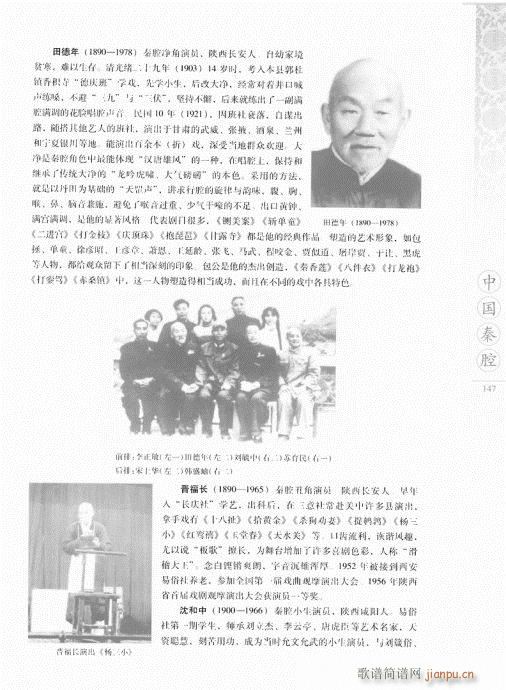 田德年（1890—1978）秦腔净角演员，陕西长安人。自幼家境
贫寒，难以生存。清光绪二十九年（1903）14岁时，考入本县郭杜
镇香积寺“德庆班”学戏，先学小生，后改大净，经常对着井口喊
声练嗓，不避“三九”与“三伏”，坚持不懈，后来就练出了一副满
腔满调的花脸唱腔声音。民国10年（1921），因班社衰落，自谋出
路，随搭其他艺人的班社，演出于甘肃的武威、张掖、酒泉、兰州
和宁夏银川等地。能演出百余本（折）戏，深受当地群众欢迎。大
净是秦腔角色中最能体现“汉唐雄风”的一种，在唱腔上，保持和
继承了传统大净的“龙吟虎啸、大气磅礴”的本色。采用的方法，
就是以丹田为基础的“大罡声”，讲求行腔的旋律与韵味，腹、胸、
喉、鼻、脑音兼施，避免了喉音过重、少气干嚎的不足。出口黄钟、
满宫满调，是他的显著风格。代表剧目很多，《铡美案》《斩单童》
《二进宫》《打金枝》《庆顶珠》《抱琵琶》《甘露寺》都是他的经典作品。塑造的艺术形象，如包
拯、单童、徐彦昭、王彦章、萧恩、王延龄、张飞、马武、程咬金、贾似道、屠岸贾、于让、黑虎
等人物，都给观众留下了相当深刻的印象。包公是他的杰出创造，《秦香莲》《八件衣》《打龙袍》
《打銮驾》《赤桑镇》中，这一人物塑造得相当成功，而且在不同的戏中各具特色。
田德年（1890—1978）
中国秦腔
147
前排：李正敏（左一）田德年（左二）刘毓中（右二）苏育民（右一）
后排：宋上华（左二）韩盛岫（右二）
晋福长（1890—1965）秦腔丑角演员。陕西长安人。早年
入“长庆社”学艺，出科后，在三意社常赴关中许多县演出，
拿手戏有《十八扯》《拾黄金》《杀狗劝妻》《提鹌鹑》《杨三
小》《红鸾禧》《玉堂春》《天水关》等。口齿流利，诙谐风趣，
尤以说“板歌”擅长，为舞台增加了许多喜剧色彩，人称“滑
稽大王”。念白铿锵爽朗，字音沉雄浑厚。1952年被接到西安
易俗社养老，参加全国第一届戏曲观摩演出大会。1956年陕西
省首届戏剧观摩演出大会获演员一等奖。
晋福长演出《杨三小》
沈和中（1900—1966）秦腔小生演员，陕西咸阳人。易俗
社第一期学生，师承刘立杰、李云亭、唐虎臣等艺术名家，天
资聪慧，刻苦用功，成为当时允文允武的小生演员，与刘箴俗、
歌谱简谱网
jianpu.cn